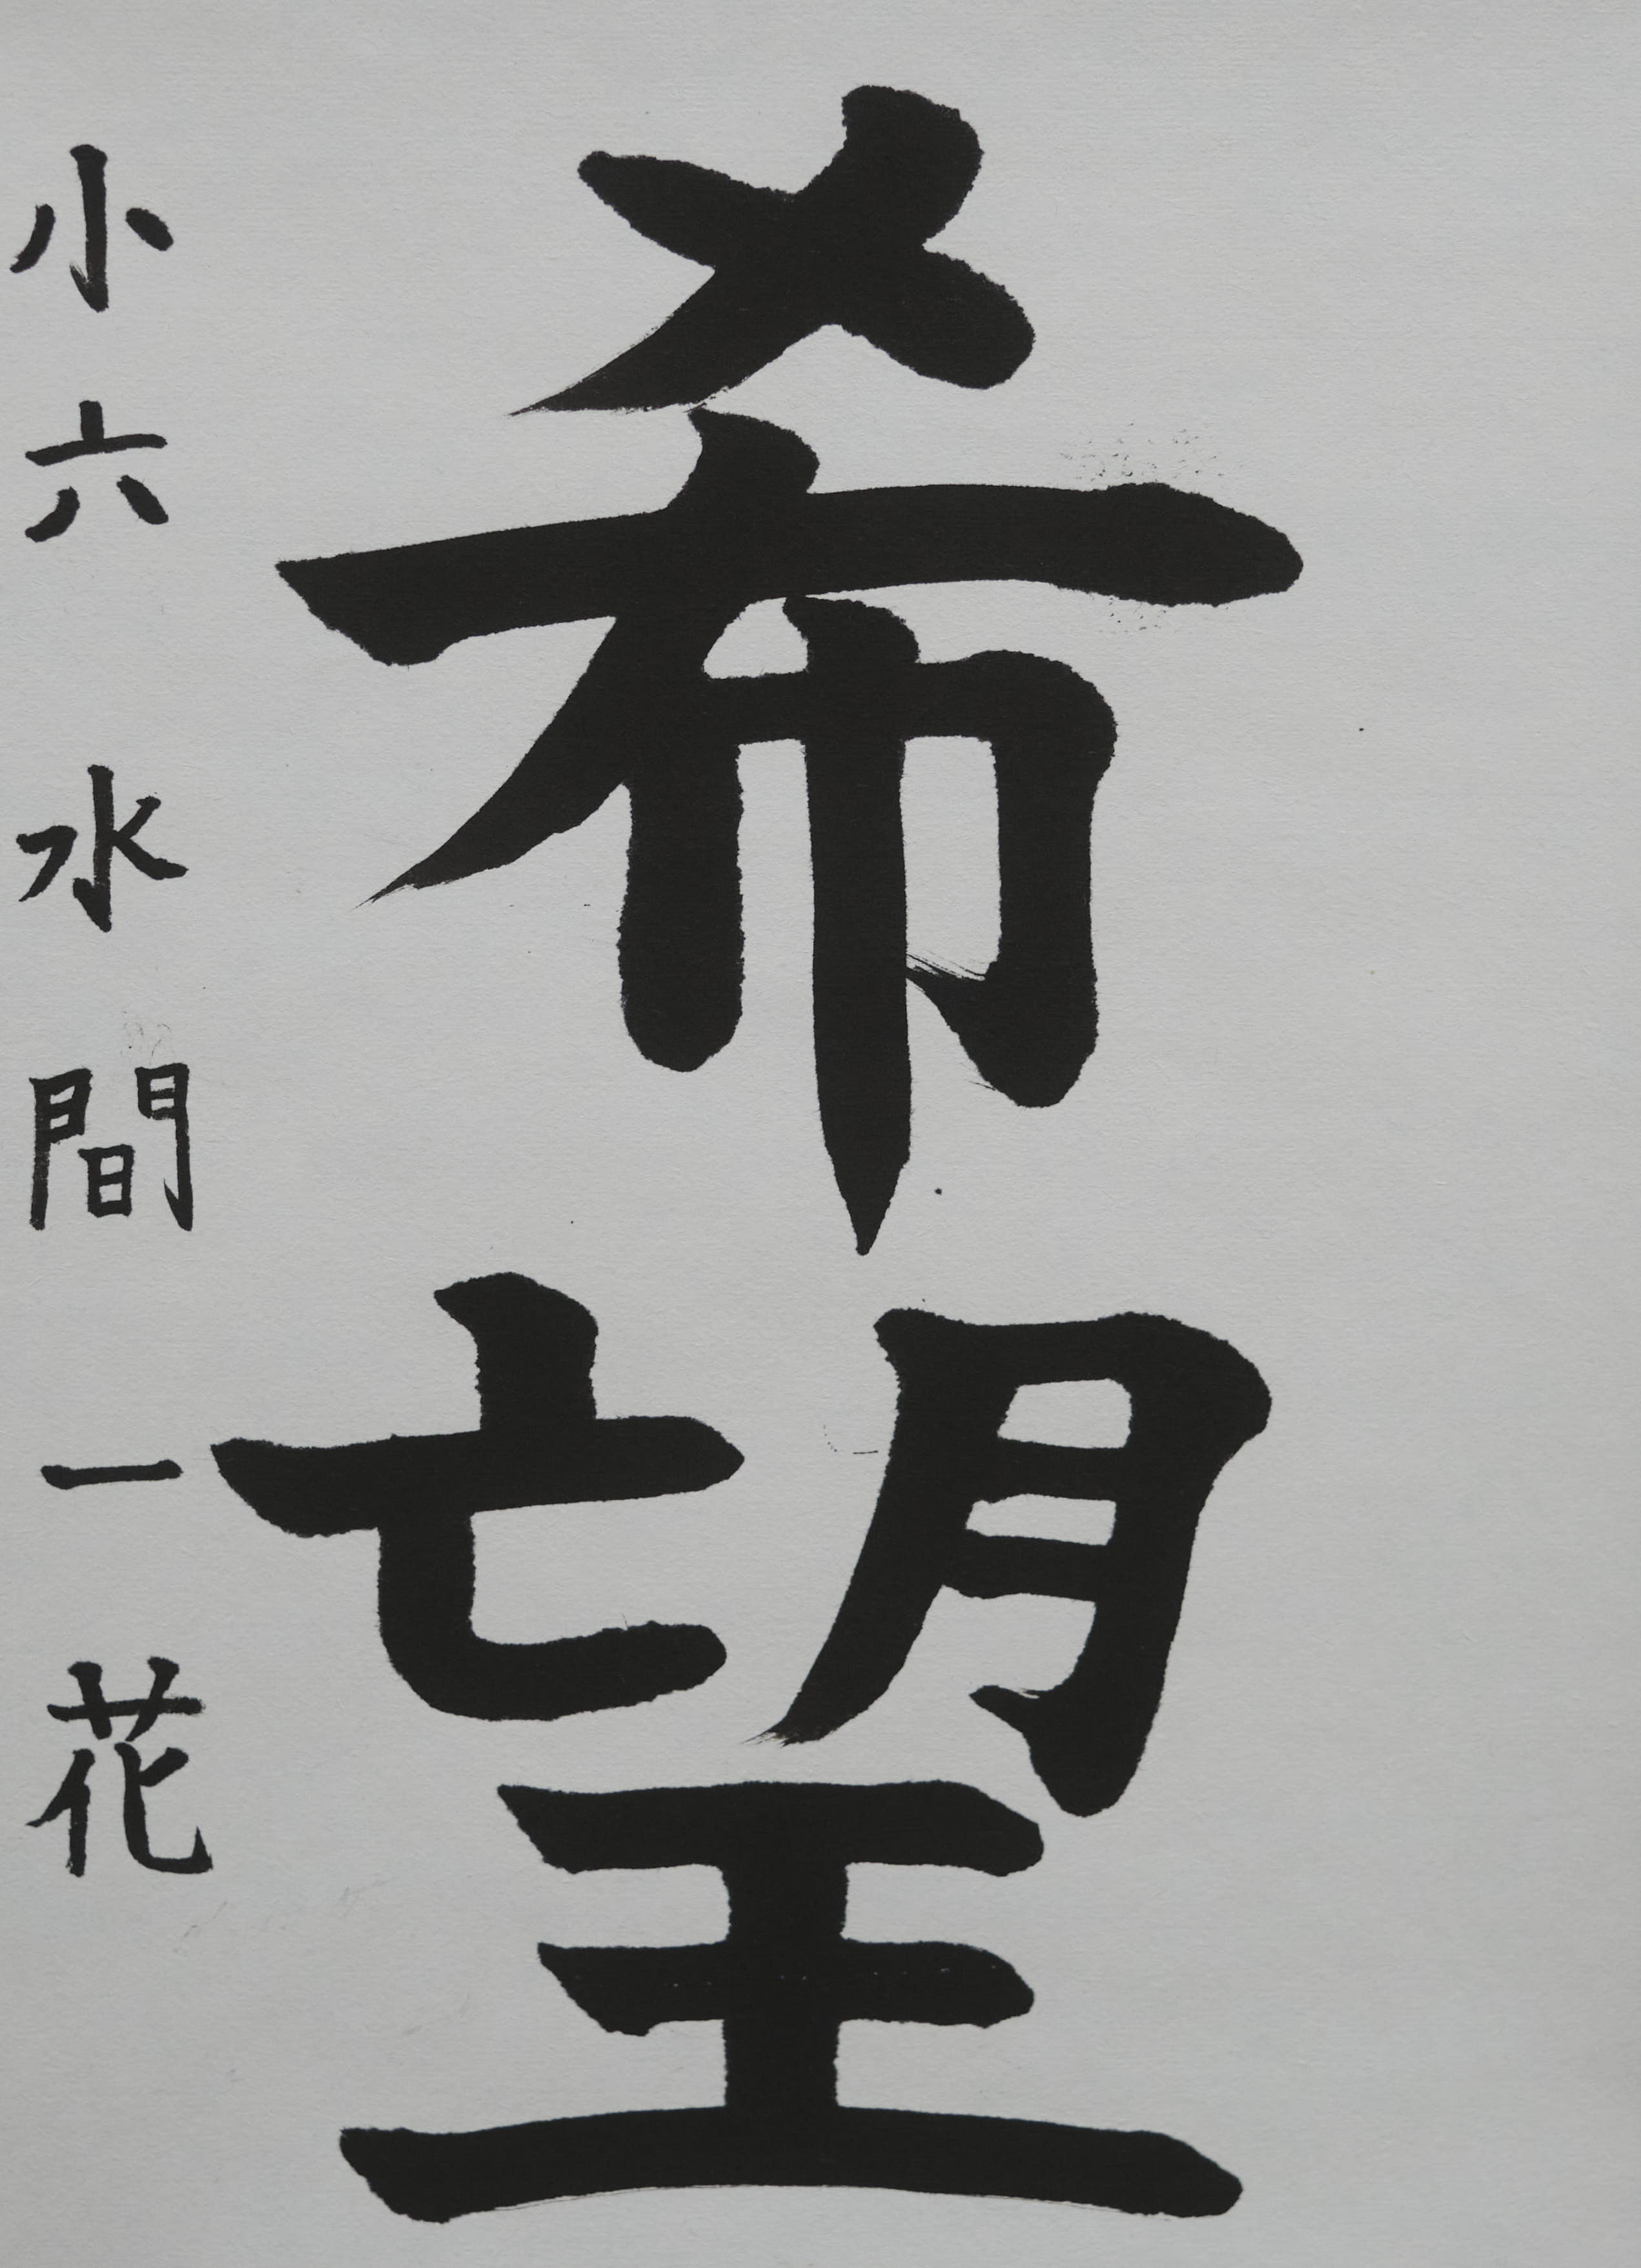 希望
小六 水間 一花